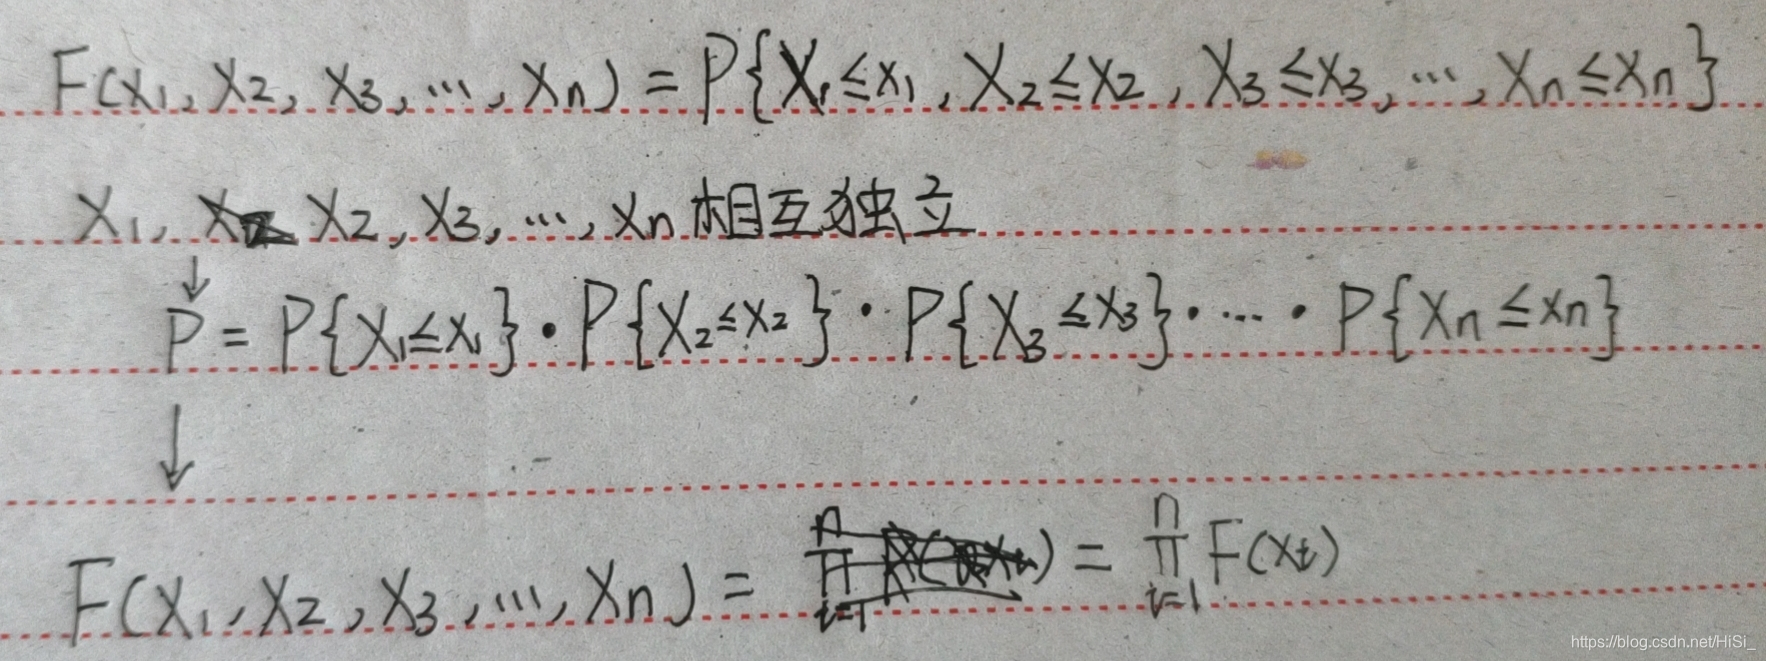 F(x₁, x₂, x₃, ..., xₙ) = P{X₁≤x₁, X₂≤x₂, X₃≤x₃, ..., Xₙ≤xₙ}
X₁, X₂, X₃, ..., Xₙ 相互独立
↓
P = P{X₁≤x₁}·P{X₂≤x₂}·P{X₃≤x₃}·...·P{Xₙ≤xₙ}
↓
F(x₁, x₂, x₃, ..., xₙ) = = ∏ⁿᵢ₌₁ F(xᵢ)
https://blog.csdn.net/HiSi_